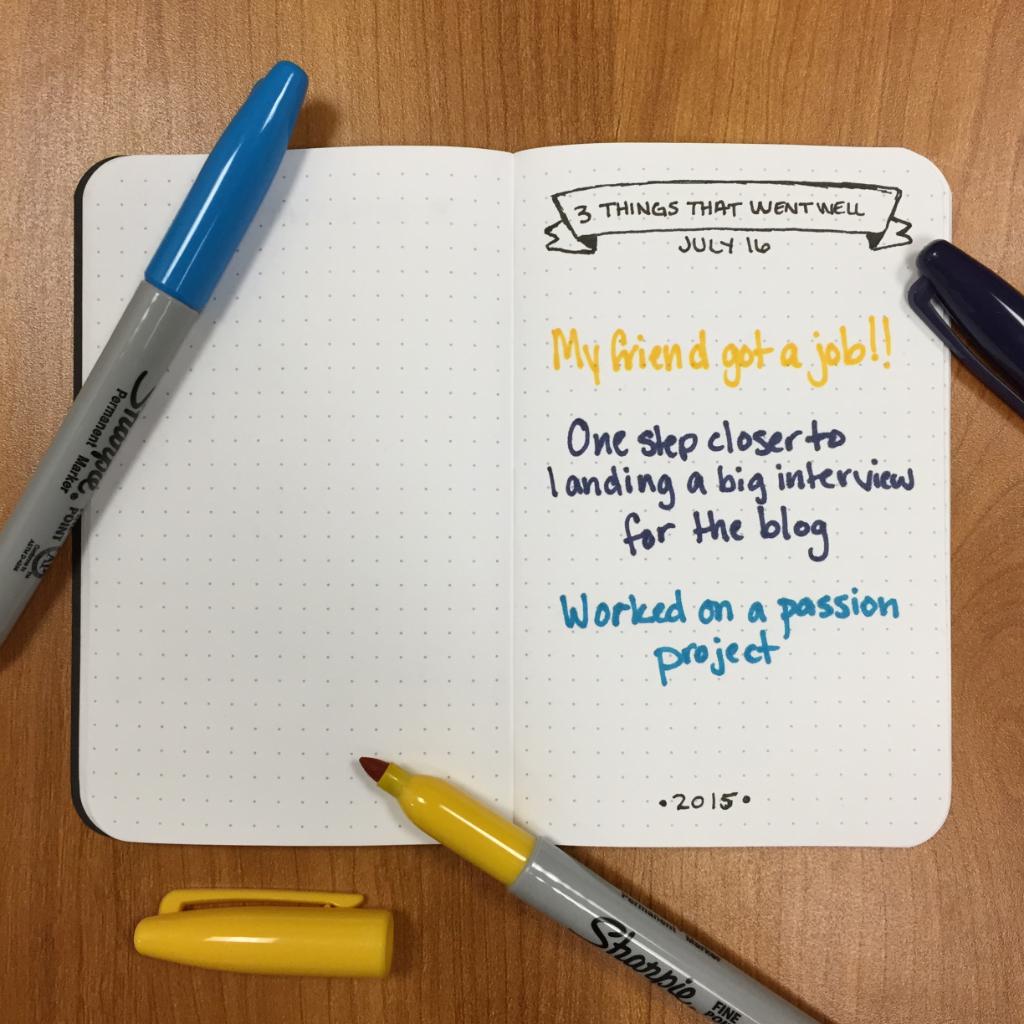 3 THINGS THAT WENT WELL
JULY 16
My friend got a job!!
One step closer to
landing a big interview
for the blog
Worked on a passion
project
•2015•
Sharpie.
Permanent Marker
POINT
Permanent Marker
Sharpie
FINE